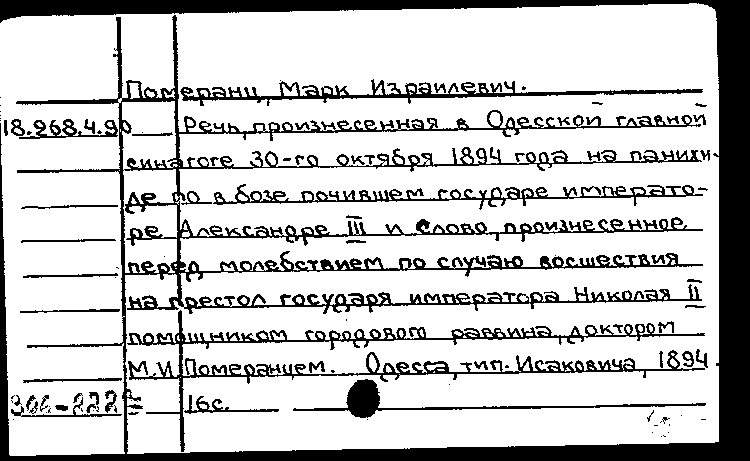 Померанц, Марк Израилевич.
18.268.4.90 Речь, произнесенная в Одесской главной
синагоге 30-го октября 1894 года на панихи-
де по в бозе почившем государе императо-
ре Александре III и слово, произнесенное
перед молебствием по случаю восшествия
на престол государя императора Николая II
помощником городового раввина, доктором
М.И.Померанцем. Одесса, тип. Исаковича, 1894.
16с.